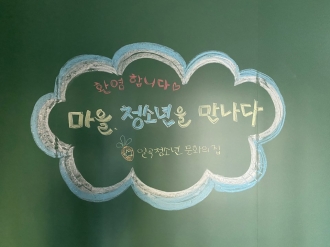 환영합니다♡
마을, 청소년을 만나다
일곡청소년문화의집